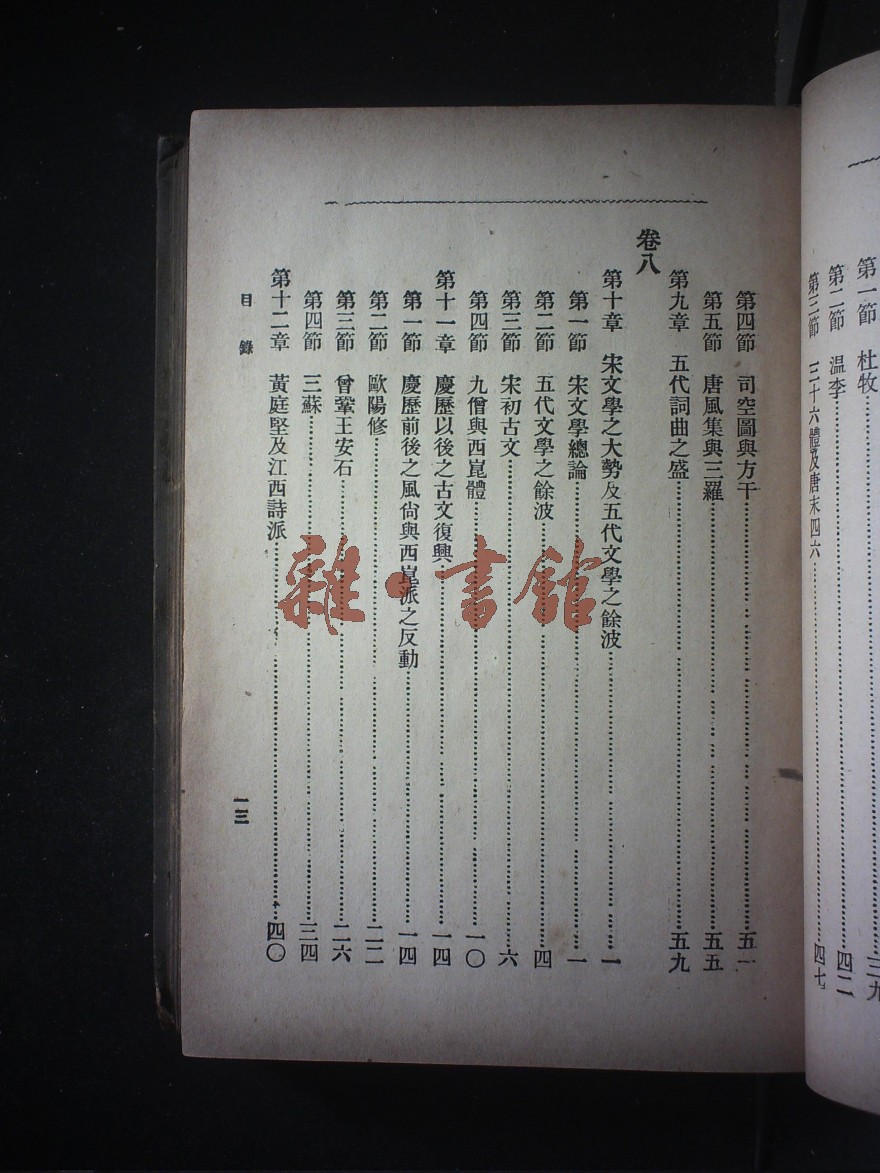 第一節　杜牧……三九
第二節　温李……四二
第三節　三十六體及唐末四六……四七
第四節　司空圖與方干……五一
第五節　唐風集與三羅……五五
第九章　五代詞曲之盛……五九
卷八
第十章　宋文學之大勢及五代文學之餘波……一
第一節　宋文學總論……一
第二節　五代文學之餘波……四
第三節　宋初古文……六
第四節　九僧與西崑體……一〇
第十一章　慶歷以後之古文復興……一四
第一節　慶歷前後之風尙與西崑派之反動……一四
第二節　歐陽修……二二
第三節　曾鞏王安石……二六
第四節　三蘇……三四
第十二章　黃庭堅及江西詩派……四〇
目錄
一三
雜·書館